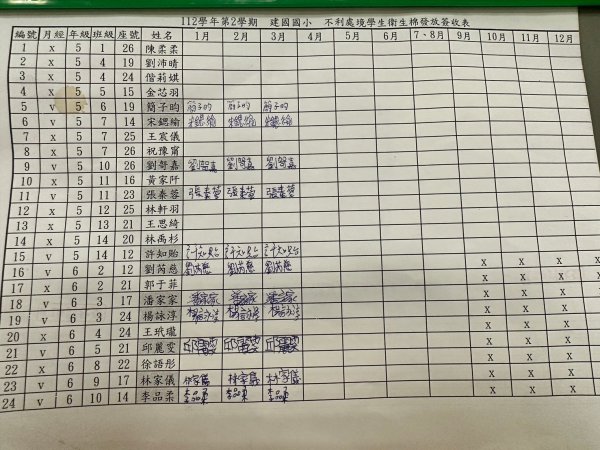 112學年第2學期 建國國小 不利處境學生衛生棉發放簽收表
編號 月經 年級 班級 座號 姓名 1月 2月 3月 4月 5月 6月 7、8月 9月 10月 11月 12月
1 x 5 1 26 陳柔柔
2 x 5 4 19 劉沛晴
3 x 5 4 24 偕莉娸
4 x 5 5 15 金芯羽
5 v 5 6 19 簡子昀 簡子昀 簡子昀 簡子昀
6 v 5 7 14 宋鍶綸 宋鍶綸 宋鍶綸 宋鍶綸
7 x 5 7 25 王宸儀
8 x 5 7 26 祝豫甯
9 v 5 10 26 劉哿嘉 劉哿嘉 劉哿嘉 劉哿嘉
10 x 5 11 16 黃家阡
11 v 5 11 23 張秦蓉 張秦蓉 張秦蓉 張秦蓉
12 x 5 12 25 林軒羽
13 x 5 13 21 王思綺
14 x 5 14 20 林禹杉
15 v 5 14 12 許知貽 許知貽 許知貽 許知貽 x x x
16 v 6 2 12 劉芮慈 劉芮慈 劉芮慈 劉芮慈 x x x
17 x 6 2 21 郭于菲 x x x
18 v 6 3 17 潘家家 潘家家 潘家家 潘家家 x x x
19 v 6 3 24 楊詠淳 楊詠淳 楊詠淳 楊詠淳 x x x
20 x 6 4 24 王玳瓏 x x x
21 v 6 5 21 邱麗雯 邱麗雯 邱麗雯 邱麗雯 x x x
22 x 6 8 22 徐語彤 x x x
23 v 6 9 17 林家儀 林家儀 林家儀 林家儀 x x x
24 v 6 10 14 李品柔 李品柔 李品柔 李品柔 x x x